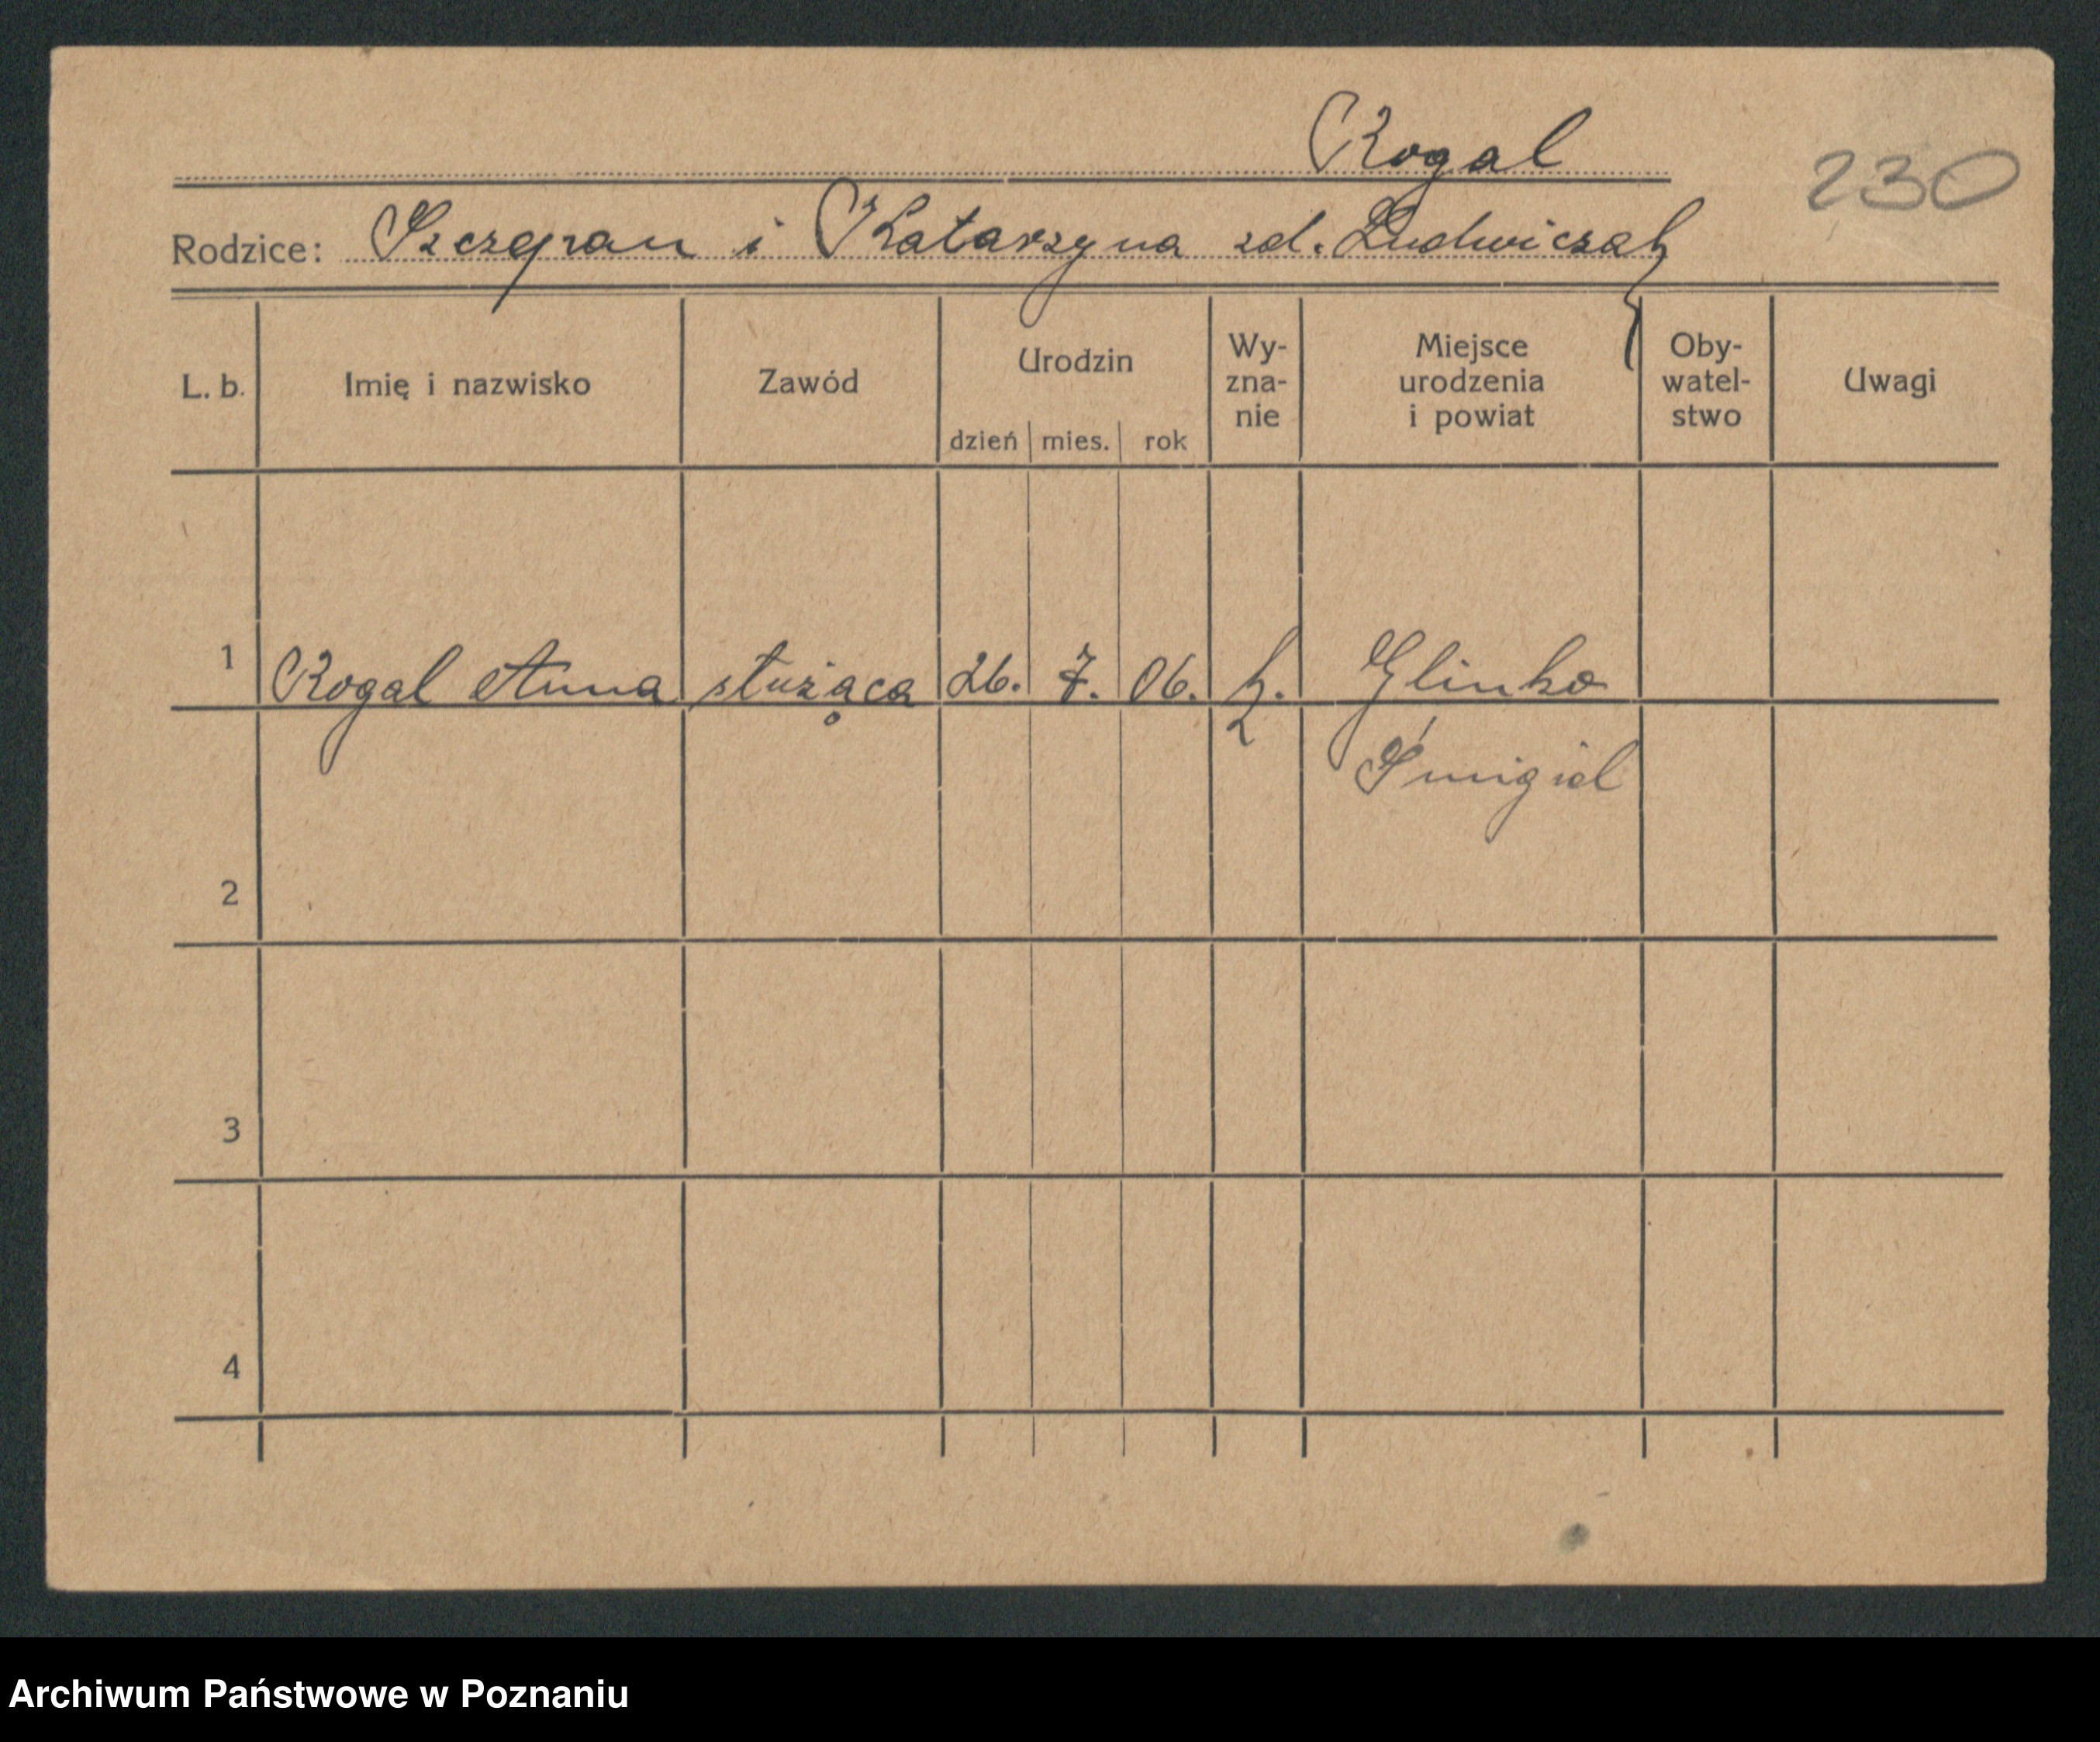 Rogal
230
Rodzice: Szczepan i Katarzyna zd. Ludwiczak
L. b. Imię i nazwisko Zawód Urodzin dzień mies. rok Wy- zna- nie Miejsce urodzenia i powiat Oby- watel- stwo Uwagi
1 Rogal Anna służąca 26. 7. 06. k. Glinko
Śmigiel
2
3
4
Archiwum Państwowe w Poznaniu